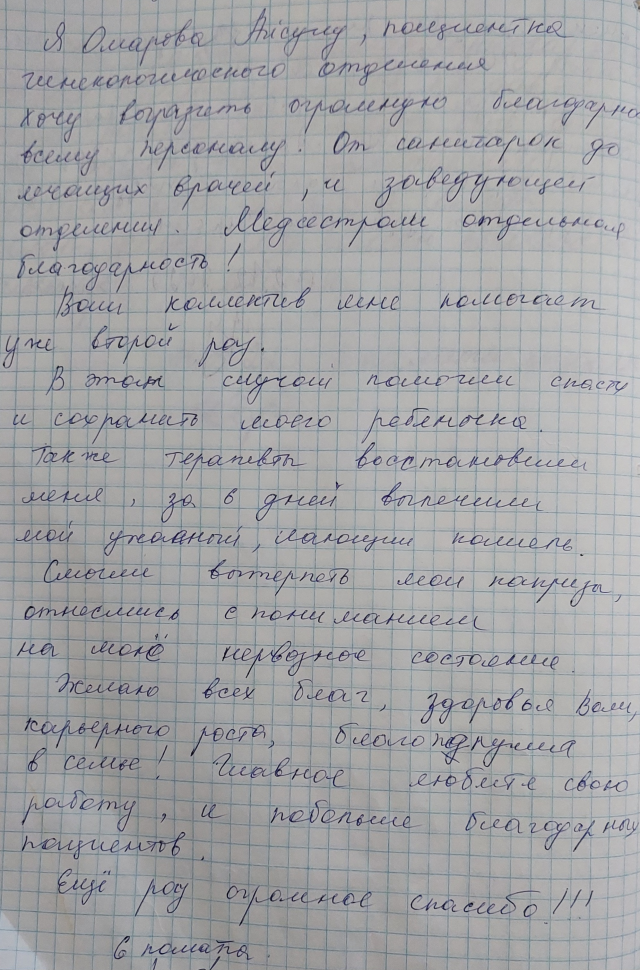 Я Омарова Айсулу, пациентка
гинекологического отделения
хочу выразить огромную благодарно
всему персоналу. От санитарок до
лечащих врачей, и заведующей
отделения. Медсестрам отдельная
благодарность!
Ваш коллектив мне помогает
уже второй раз.
В этом случай помогли спасти
и сохранить моего ребеночка.
Также терапевты восстановили
меня, за 6 дней вылечили
мой ужасный, лающий кашель.
Смогли вытерпеть мои капризы,
отнеслись с пониманием
на моё нервозное состояние.
Желаю всех благ, здоровья Вам,
карьерного роста, благополучия
в семье! Главное любите свою
работу, и побольше благодарных
пациентов.
Ещё раз огромное спасибо!!!
6 палата.